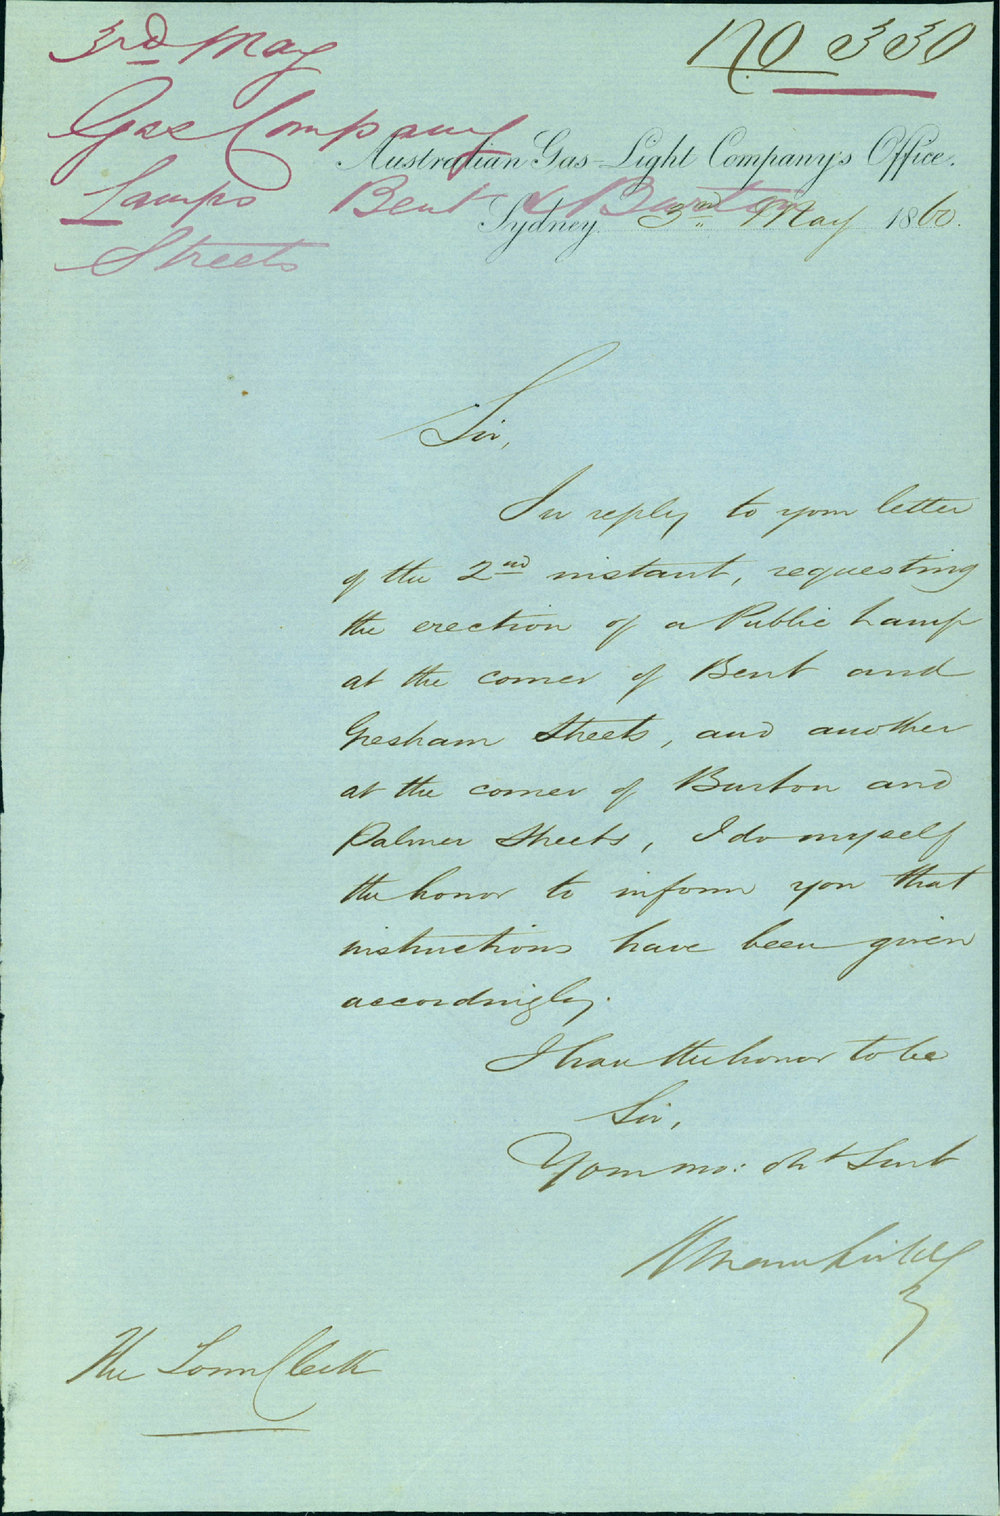 3rd May
No 330
Gas Company
Lamps Bent & Burton
Streets
Australian Gas-Light Company's Office.
Sydney 3rd May 1860.
Sir,
In reply to your letter
of the 2nd instant, requesting
the erection of a Public Lamp
at the corner of Bent and
Gresham Streets, and another
at the corner of Burton and
Palmer Streets, I do myself
the honor to inform you that
instructions have been given
accordingly.
I have the honor to be
Sir,
Your mo: obt Servt
The Town Clerk